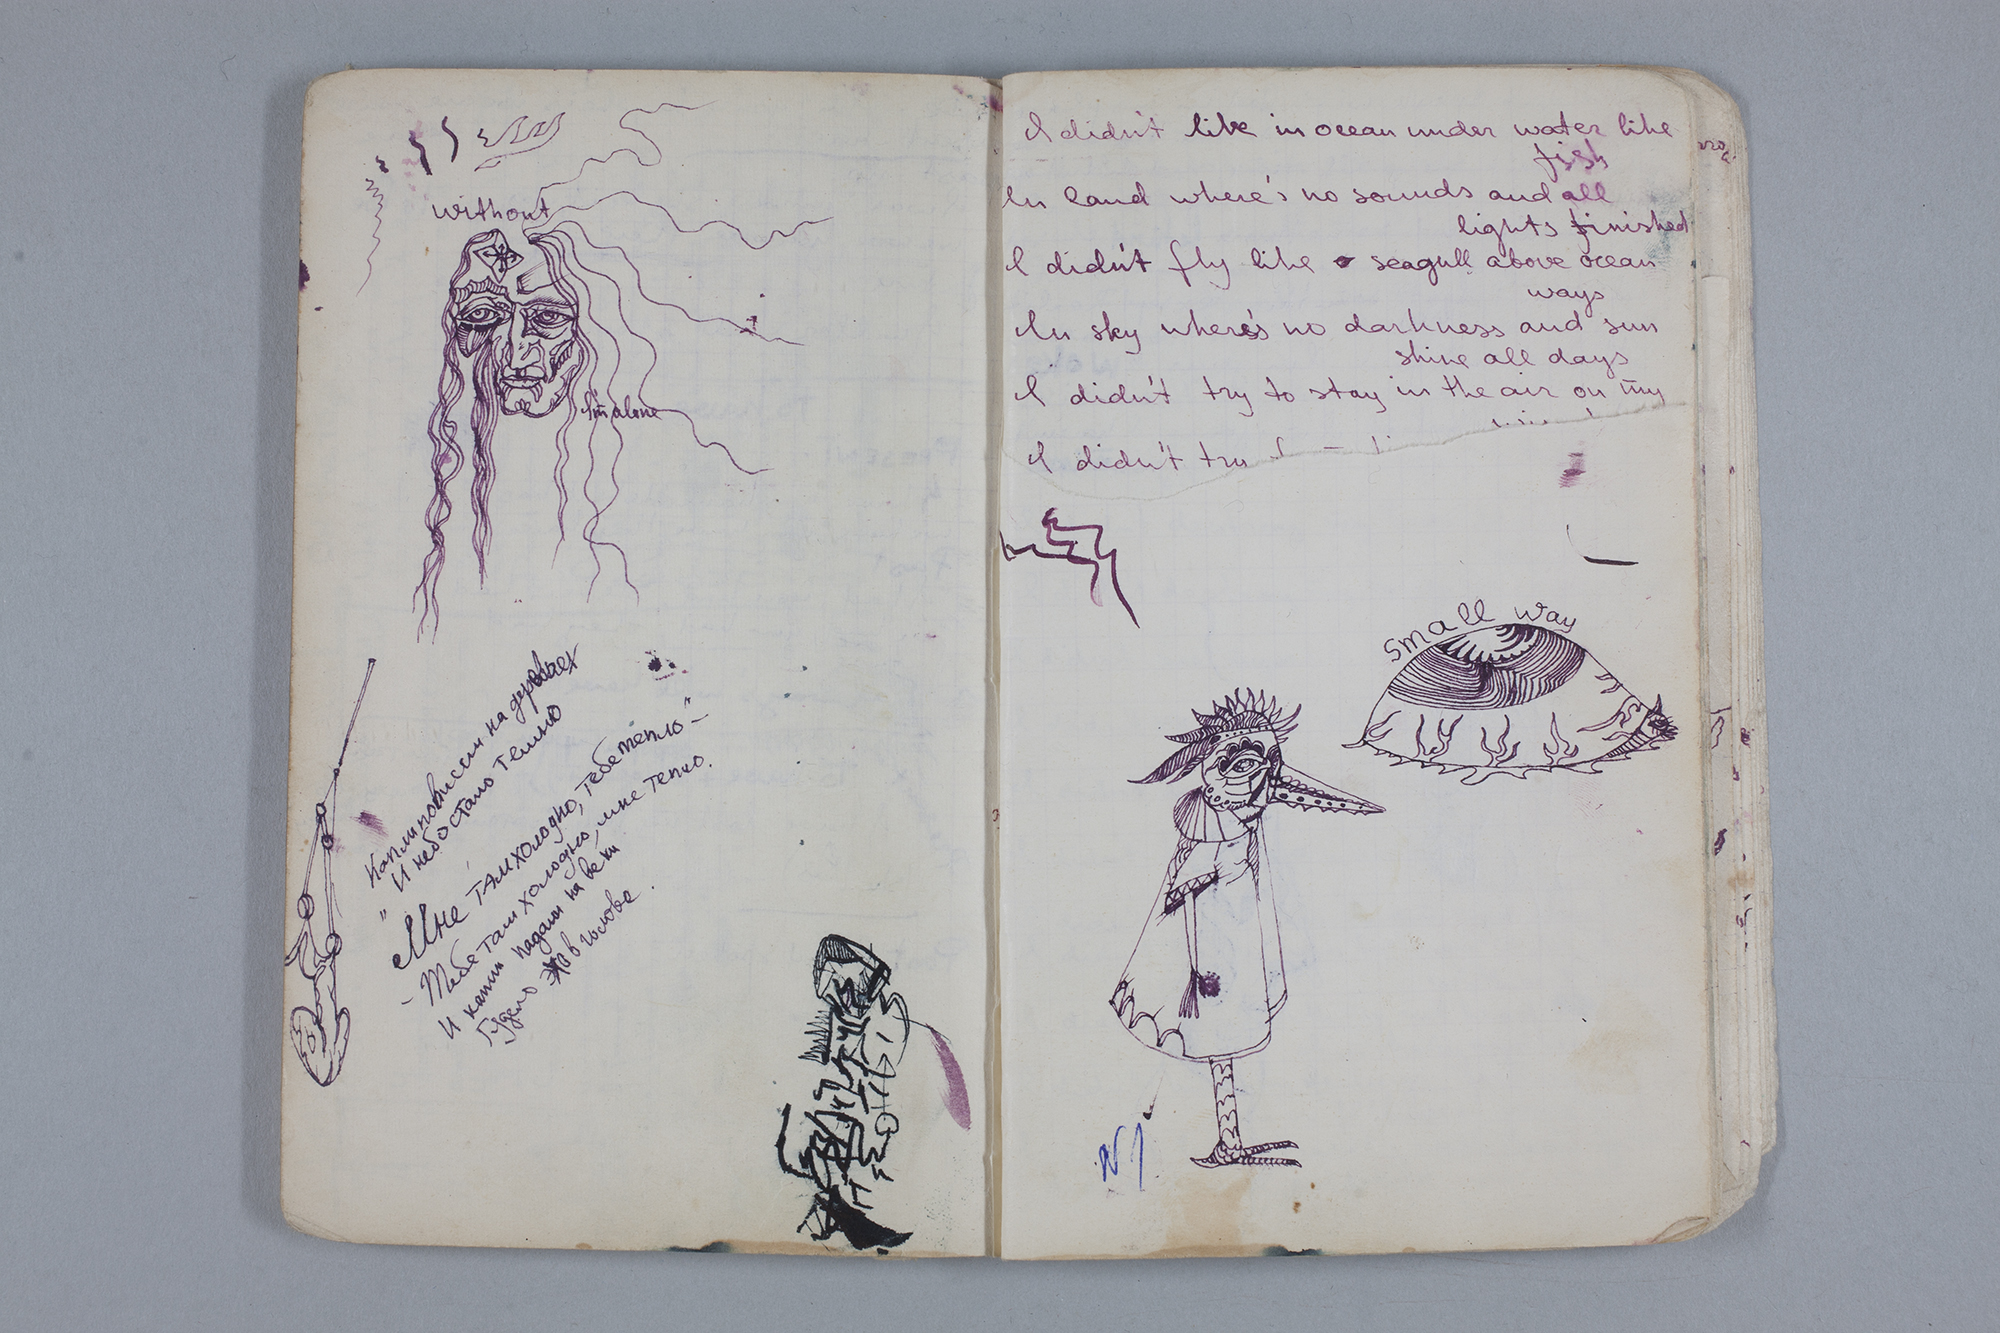 without
I'm alone
Капли повисли на деревьях
И небо стало теплло
"Мне там холодно, тебе тепло" –
– Тебе там холодно, мне тепло.
И капли падали на веки
Гудело в голове.
I didn't like in ocean under water like
fish
In land where's no sounds and all
lights finished
I didn't fly like seagull above ocean
ways
In sky where's no darkness and sun
shine all days
I didn't try to stay in the air on my
I didn't try
small way